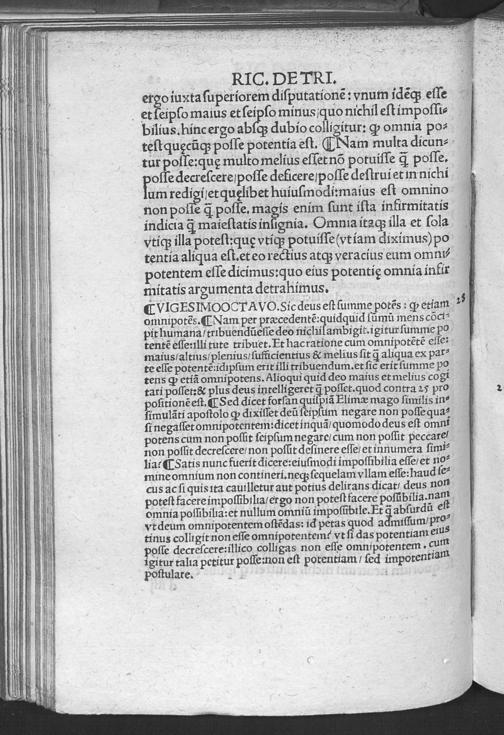 RIC. DE TRI.
ergo iuxta superiorem disputationē: vnum idēq₃ esse
et seipso maius et seipso minus/quo nichil est impossi-
bilius. hinc ergo absq₃ dubio colligitur: ꝙ omnia po-
test quęcūq₃ posse potentia est. ¶Nam multa dicun-
tur posse: quę multo melius esset nō potuisse q̄₃ posse.
posse decrescere/posse deficere/posse destrui et in nichi
lum redigi/et quęlibet huiusmodi: maius est omnino
non posse q̄₃ posse. magis enim sunt ista infirmitatis
indicia q̄₃ maiestatis insignia. Omnia itaq₃ illa et sola
vtiq₃ illa potest: quę vtiq₃ potuisse (vt iam diximus) po
tentia aliqua est. et eo rectius atq₃ veracius eum omni-
potentem esse dicimus: quo eius potentię omnia infir
mitatis argumenta detrahimus.
¶VIGESIMOOCTAVO. Sic deus est summe potēs: ꝙ etiam 28
omnipotēs. ¶Nam per præcedentē: quidquid sūmū mens cōci-
pit humana/tribuendūesse deo nichil ambigit. igitur summe po
tentē esse: illi tute tribuet. Et hac ratione cum omnipotētē esse:
maius/altius/plenius/sufficientius & melius sit q̄₃ aliqua ex par-
te esse potentē: idipsum erit illi tribuendum. et sic erit summe po
tens ꝙ etiā omnipotens. Alioqui quid deo maius et melius cogi
tari posset: & plus deus intelligeret q̄₃ posset. quod contra 25 pro
positionē est. ¶Sed dicet forsan quispiā Elimæ mago similis in-
simulāti apostolo ꝙ dixisset deū seipsum negare non posse qua-
si negasset omnipotentem: dicet inquā/quomodo deus est omni
potens cum non possit seipsum negare/cum non possit peccare/
non possit decrescere/non possit desinere esse/et innumera simi-
lia? ¶Satis nunc fuerit dicere: eiusmodi impossibilia esse/et no-
mine omnium non contineri. neq₃ sequelam vllam esse: haud se-
cus ac si quis ita cauilletur aut potius delirans dicat/deus non
potest facere impossibilia/ergo non potest facere possibilia. nam
omnia possibilia: et nullum omniū impossibile. Et q̄₃ absurdū est
vt deum omnipotentem ostēdas: id petas quod admissum/pro-
tinus colligit non esse omnipotentem? vt si das potentiam eius
posse decrescere: illico colligas non esse omnipotentem. cum
igitur talia petitur posse: non est potentiam/sed impotentiam
postulare.